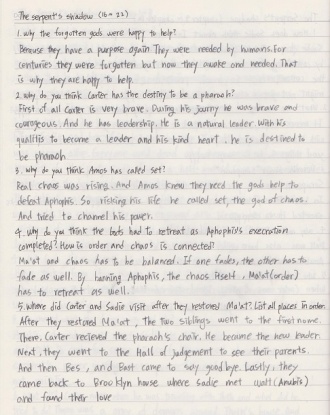 The serpent's shadow (16~22)
1. why the forgotten gods were happy to help?
Because they have a purpose again They were needed by humans. For
centuries they were forgotten but now they awake and needed. That
is why they are happy to help.
2. why do you think Carter has the destiny to be a pharaoh?
First of all Carter is very brave. During his journy he was brave and
courageous. And he has leadership. He is a natural leader. With his
qualitis to become a leader and his kind heart, he is destined to
be pharaoh
3. why do you think Amos has called set?
Real chaos was rising. And Amos knew they need the gods help to
defeat Aphophis. So risking his life he called set, the god of chaos.
And tried to channel his power.
4. why do you think the gods had to retreat as Aphophis's execration
completed? How is order and chaos is connected?
Ma'at and chaos has to be balanced. If one fades, the other has to
fade as well. By banning Aphaphis, the chaos itself, Ma'at(order)
has to retreat as well.
5. where did Carter and Sadie visit after they restored Ma'at? List all places in order.
After they restored Ma'at, The two siblings went to the first nome.
There, Carter recieved the pharaoh's chair. He became the new leader.
Next, they went to the Hall of judgement to see their parents.
And then Bes, and Bast came to say goodbye. Lastly, they
came back to Brooklyn house where sadie met walt (Anubis)
and found their love